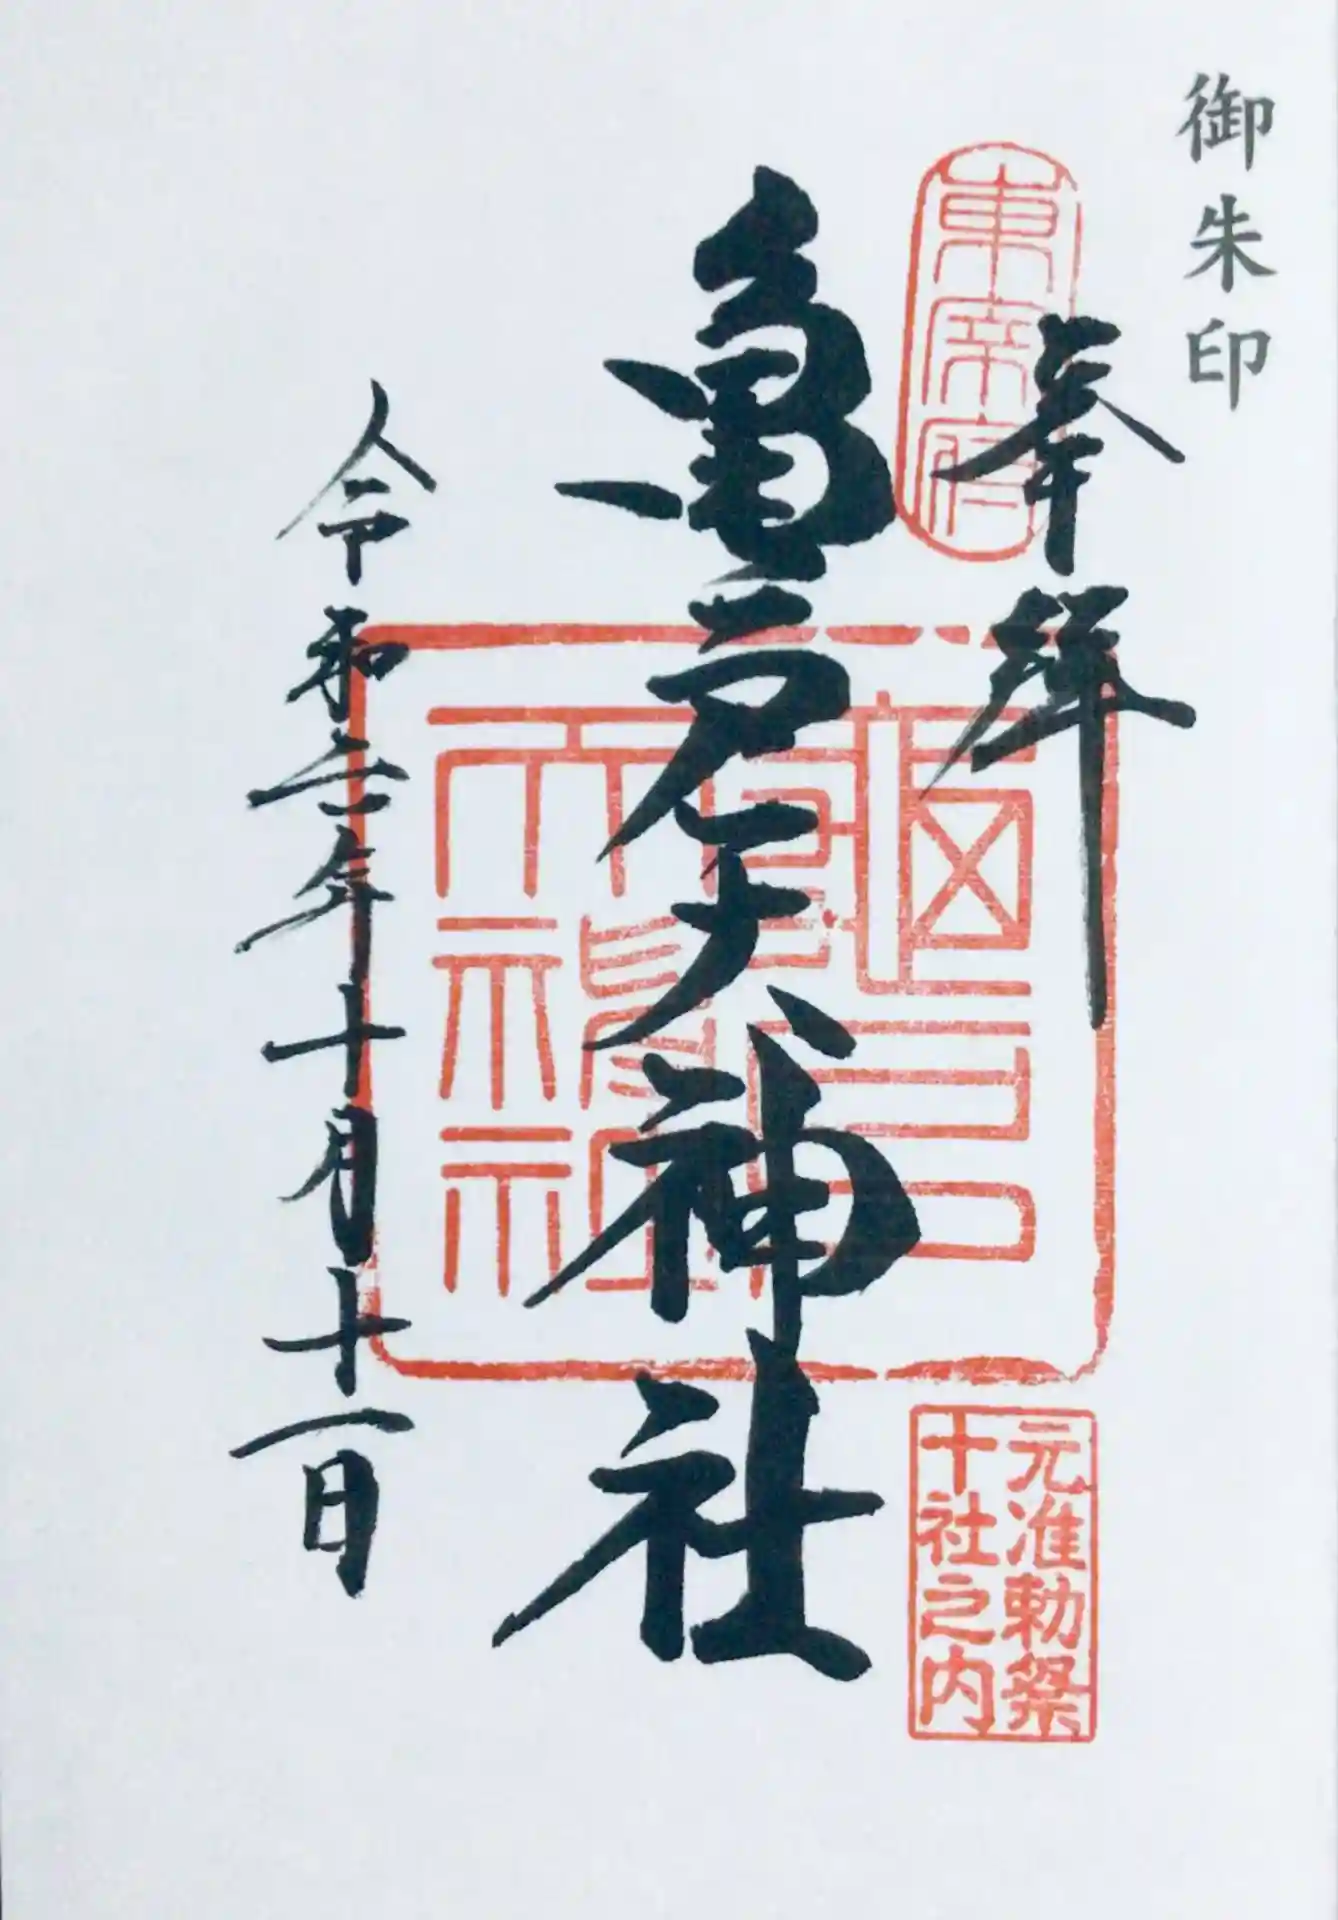 御朱印
東宰府
奉拝
亀戸天神社
龜戸
天神社
元准勅祭
十社之内
令和六年十月十一日